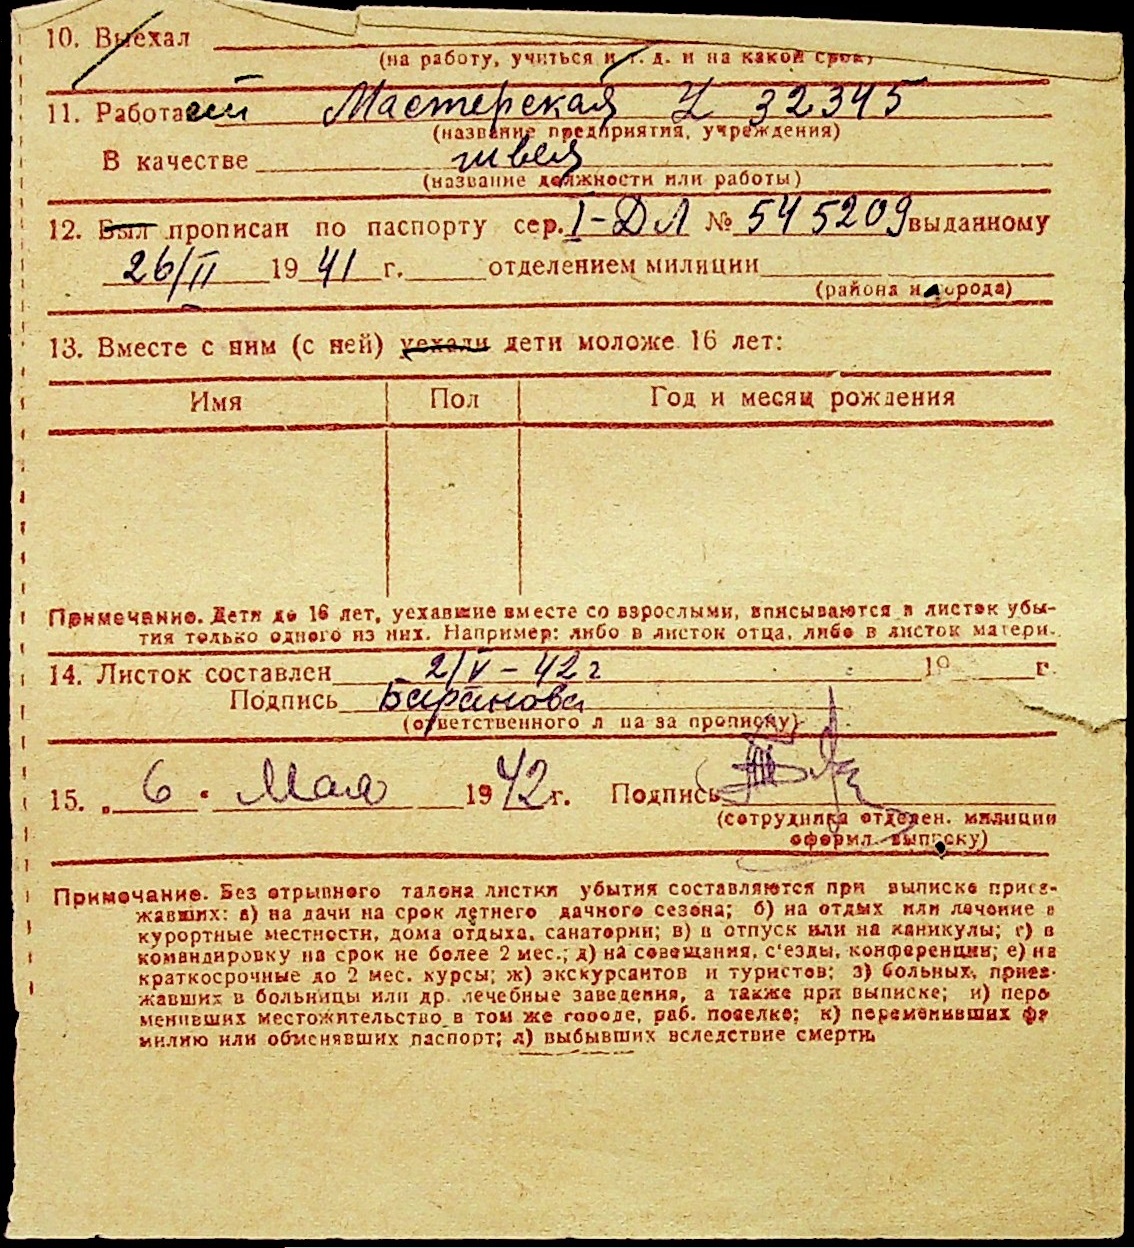 10. Выехал
(на работу, учиться и т. д. и на какой срок)
11. Работает Мастерская Ц 32345
(название предприятия, учреждения)
В качестве швея
(название должности или работы)
12. Был прописан по паспорту сер. I-ДЛ № 545209 выданному
26/II 1941 г. отделением милиции
(района и города)
13. Вместе с ним (с ней) уехали дети моложе 16 лет:
Имя Пол Год и месяц рождения
Примечание. Дети до 16 лет, уехавшие вместе со взрослыми, вписываются в листок убы-
тия только одного из них. Например: либо в листок отца, либо в листок матери.
14. Листок составлен 2/V-42 г 19 г.
Подпись Баранова
(ответственного лица за прописку)
15. „6" Мая 1942 г. Подпись
(сотрудника отделен. милиции
оформл. выписку)
Примечание. Без отрывного талона листки убытия составляются при выписке приез-
жавших: а) на дачи на срок летнего дачного сезона; б) на отдых или лечение в
курортные местности, дома отдыха, санатории; в) в отпуск или на каникулы; г) в
командировку на срок не более 2 мес.; д) на совещания, с'езды, конференции; е) на
краткосрочные до 2 мес. курсы; ж) экскурсантов и туристов; з) больных, приез-
жавших в больницы или др. лечебные заведения, а также при выписке; и) пере
менивших местожительство в том же городе, раб. поселке; к) переменивших фа
милию или обменявших паспорт; л) выбывших вследствие смерти.